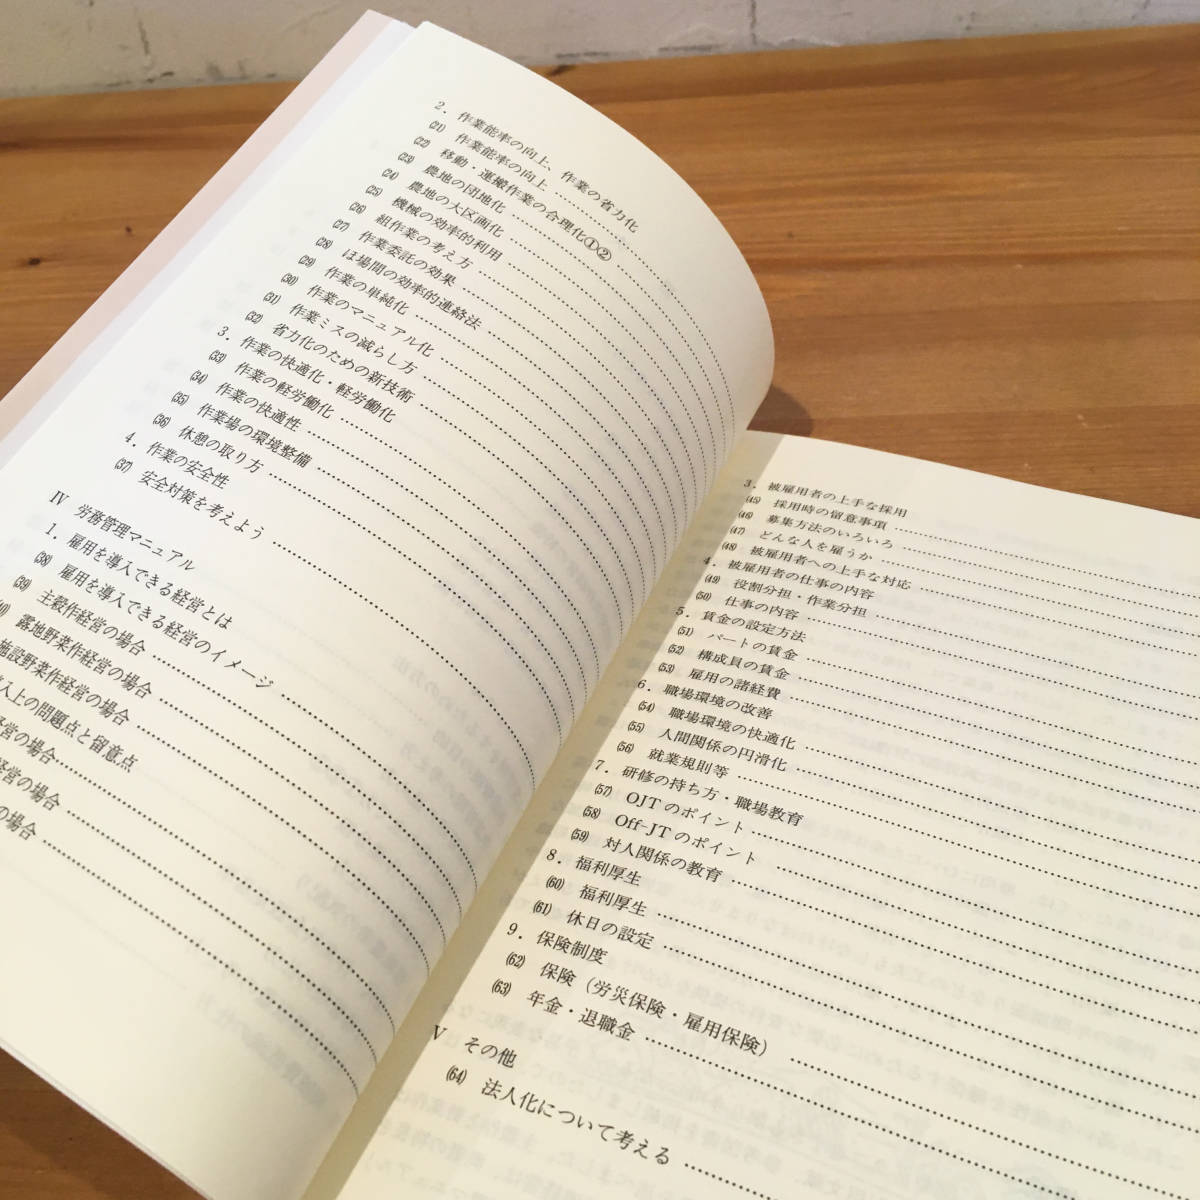 2. 作業能率の向上、作業の省力化
(21) 作業能率の向上
(22) 移動・運搬作業の合理化①②
(23) 農地の団地化
(24) 農地の大区画化
(25) 機械の効率的利用
(26) 組作業の考え方
(27) 作業委託の効果
(28) ほ場間の効率的連絡法
(29) 作業の単純化
(30) 作業のマニュアル化
(31) 作業ミスの減らし方
(32) 省力化のための新技術
3. 作業の快適化・軽労働化
(33) 作業の軽労働化
(34) 作業の快適性
(35) 作業場の環境整備
(36) 休憩の取り方
4. 作業の安全性
(37) 安全対策を考えよう
Ⅳ 労務管理マニュアル
1. 雇用を導入できる経営とは
(38) 雇用を導入できる経営のイメージ
(39) 主穀作経営の場合
露地野菜作経営の場合
施設野菜作経営の場合
入上の問題点と留意点
経営の場合
経営の場合
の場合
3. 被雇用者の上手な採用
(45) 採用時の留意事項
(46) 募集方法のいろいろ
(47) どんな人を雇うか
(48) 被雇用者への上手な対応
4. 被雇用者の仕事の内容
(49) 役割分担・作業分担
(50) 仕事の内容
5. 賃金の設定方法
(51) パートの賃金
(52) 構成員の賃金
(53) 雇用の諸経費
6. 職場環境の改善
(54) 職場環境の快適化
(55) 人間関係の円滑化
(56) 就業規則等
7. 研修の持ち方・職場教育
(57) OJTのポイント
(58) Off-JTのポイント
(59) 対人関係の教育
8. 福利厚生
(60) 福利厚生
(61) 休日の設定
9. 保険制度
(62) 保険（労災保険・雇用保険）
(63) 年金・退職金
Ⅴ その他
(64) 法人化について考える